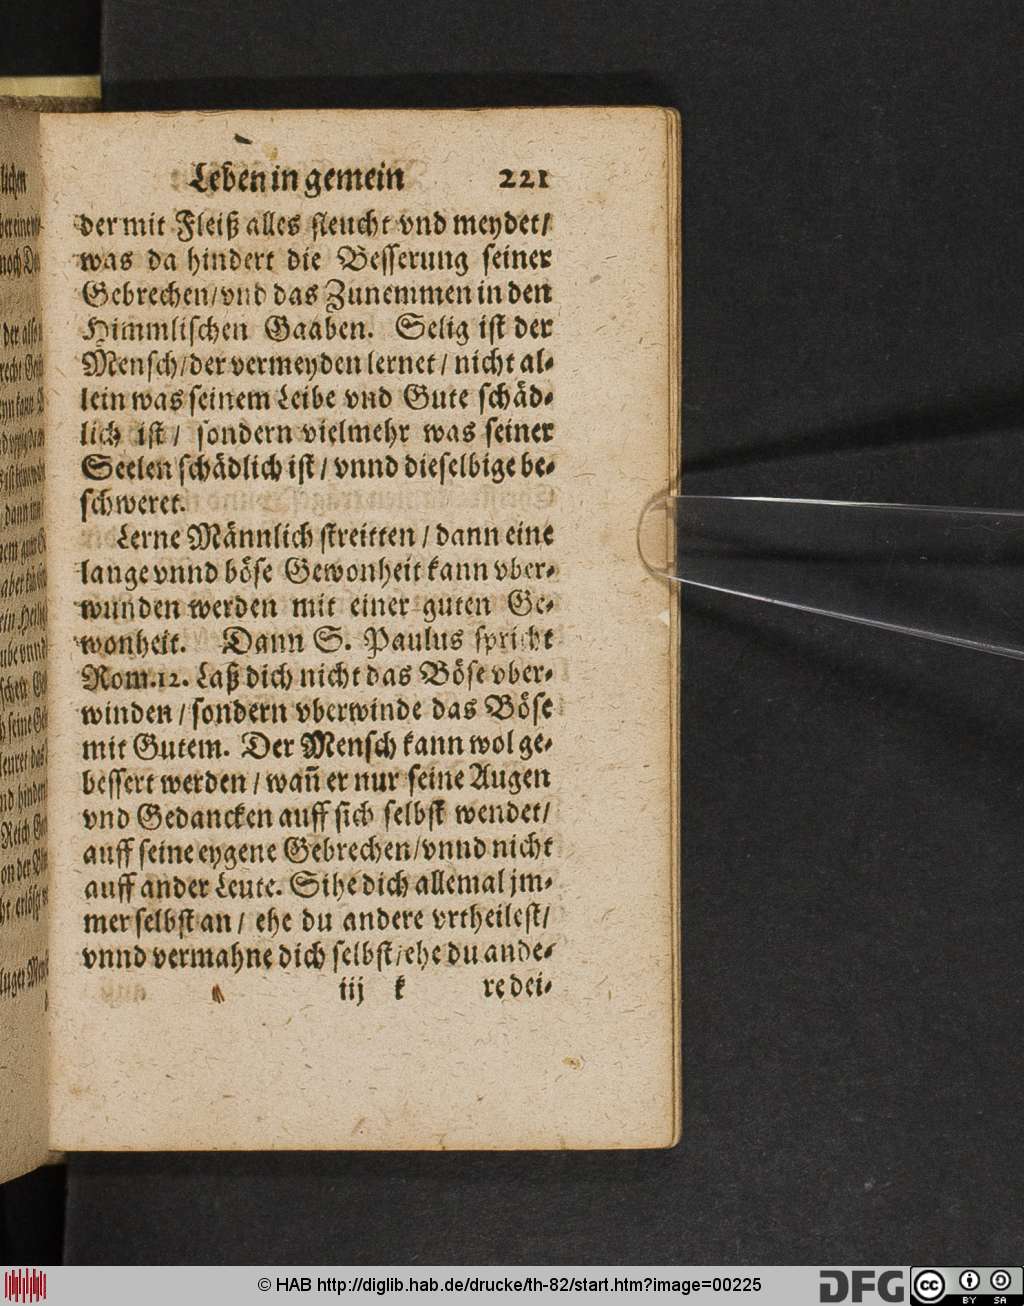 Leben in gemein 221
der mit Fleiß alles fleucht vnd meydet/
was da hindert die Besserung seiner
Gebrechen/vnd das Zunemmen in den
Himmlischen Gaaben. Selig ist der
Mensch/der vermeyden lernet/nicht al-
lein was seinem Leibe vnd Gute schäd-
lich ist/ sondern vielmehr was seiner
Seelen schädlich ist/vnnd dieselbige be-
schweret.
Lerne Männlich streitten/dann eine
lange vnnd böse Gewonheit kann vber-
wunden werden mit einer guten Ge-
wonheit. Dann S. Paulus spricht
Rom.12. Laß dich nicht das Böse vber-
winden/sondern vberwinde das Böse
mit Gutem. Der Mensch kann wol ge-
bessert werden/wañ er nur seine Augen
vnd Gedancken auff sich selbst wendet/
auff seine eygene Gebrechen/vnnd nicht
auff ander Leute. Sihe dich allemal jm-
mer selbst an/ ehe du andere vrtheilest/
vnnd vermahne dich selbst/ehe du ande-
iij k re dei-
© HAB http://diglib.hab.de/drucke/th-82/start.htm?image=00225
DFG
cc BY SA